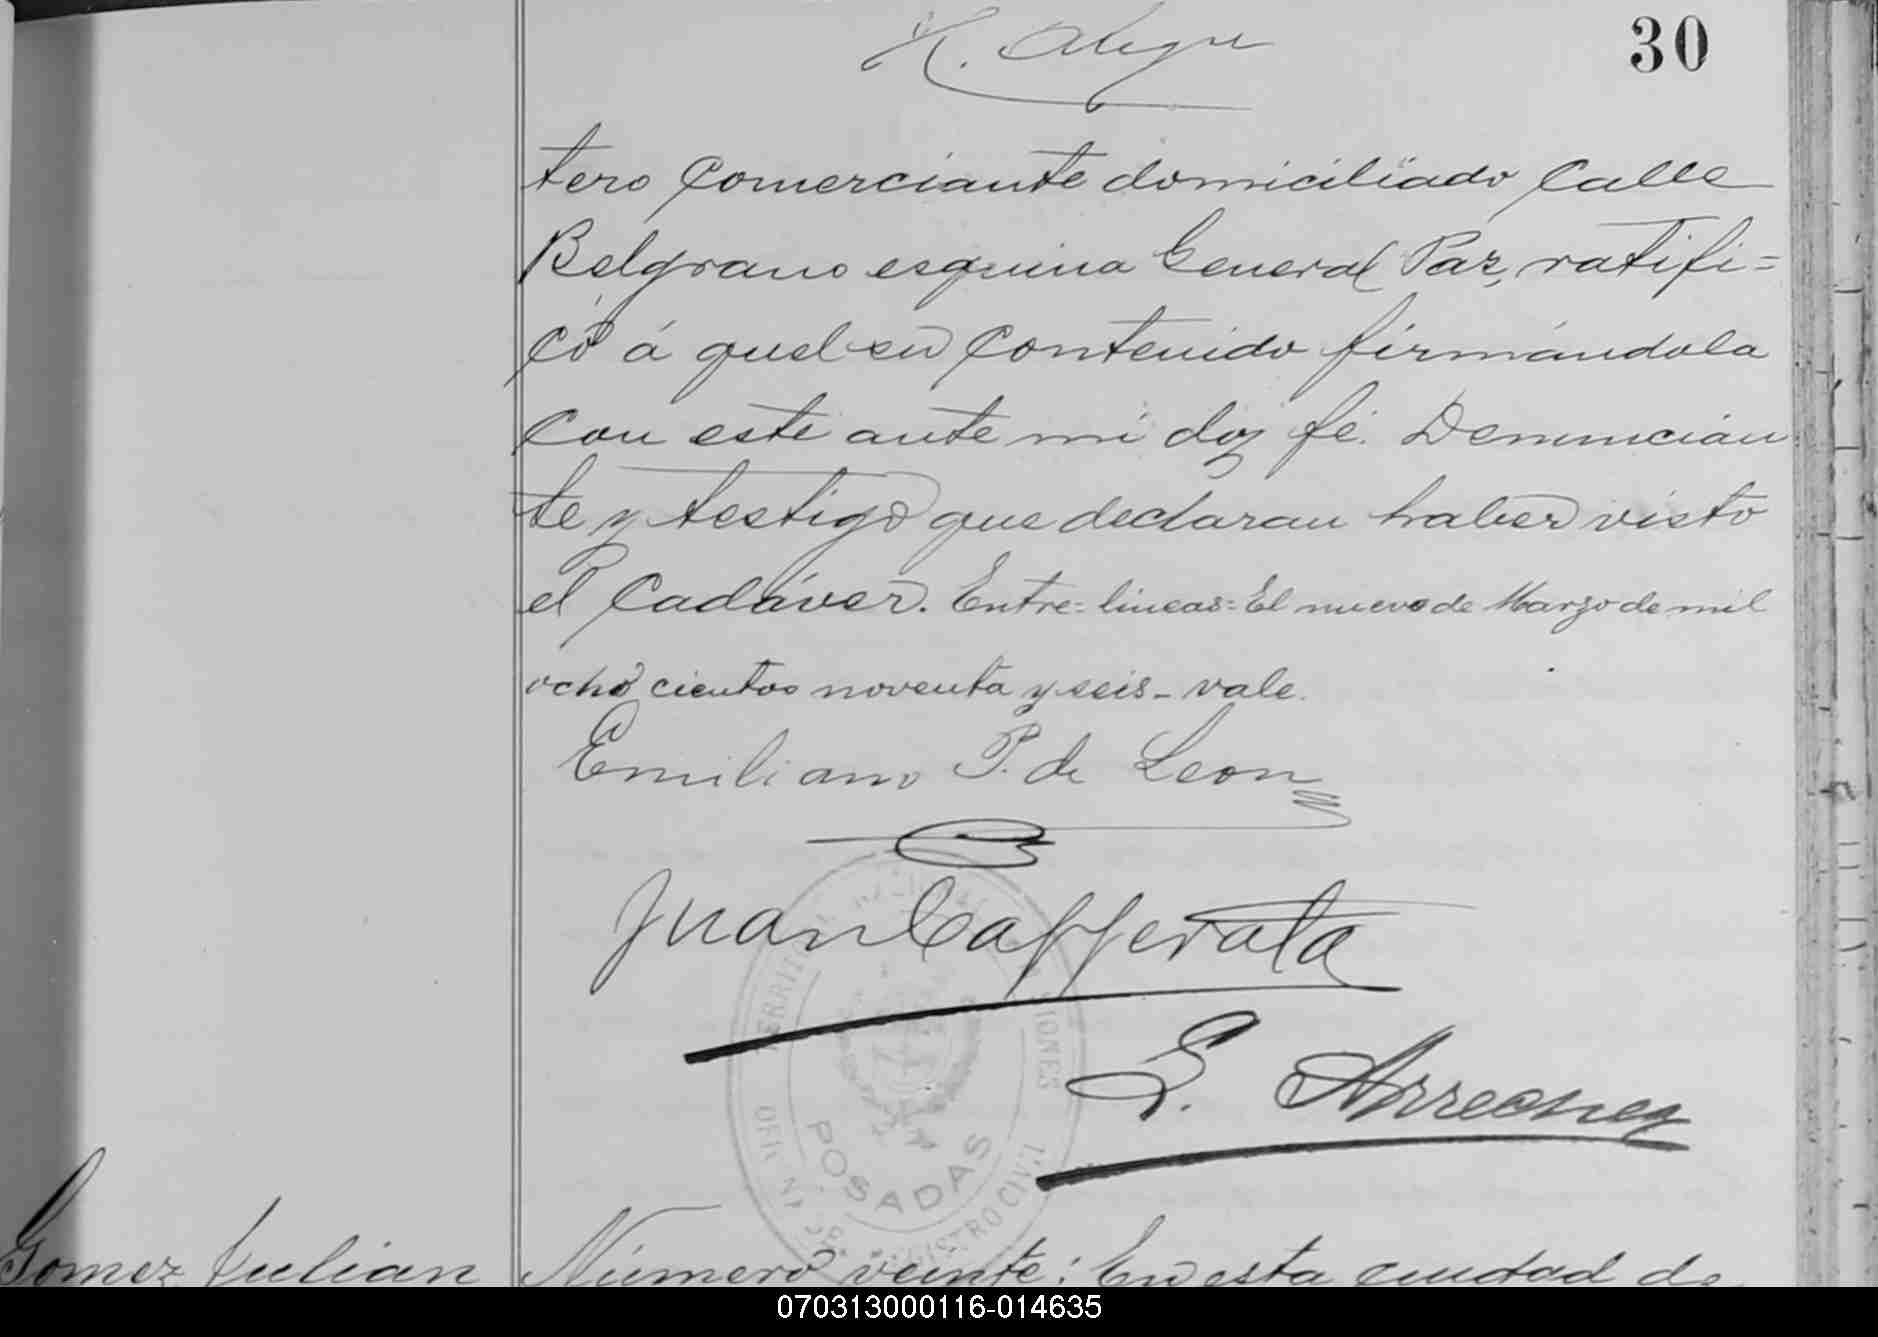 30
H. Alegre
tero comerciante domiciliado calle
Belgrano esquina General Paz, ratifi=
có á quel su contenido firmándola
con este ante mi doy fé. Denuncian
te y testigo que declaran haber visto
el cadáver. Entre=lineas=El nueve de Marzo de mil
ocho cientos noventa y seis - vale.
Emiliano P. de Leon
Juan Cafferata
TERRITORIO NACIONAL MISIONES
POSADAS
REGISTRO CIVIL
Gomez Julian
Número veinte: En esta ciudad de
070313000116-014635